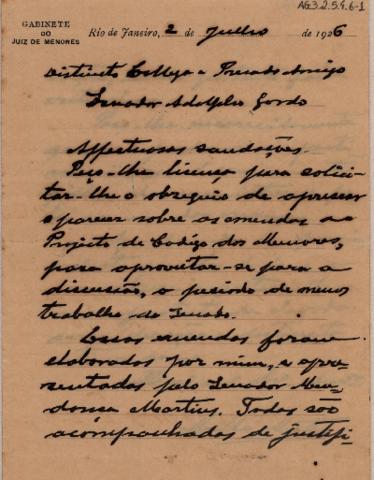 AG3.2.5.9.6-1
GABINETE
DO
JUIZ DE MENORES
Rio de Janeiro, 2 de Julho de 1926
Distincto Collega e Presado Amigo
Senador Adolpho Gordo
Affectuosas saudações.
Peço-lhe licença para solici-
tar-lhe o obsequio de apressar
o parecer sobre as emendas ao
Projecto de Codigo dos Menores,
para aproveitar-se para a
discussão, o periodo de menos
trabalho do Senado.
Essas emendas foram
elaboradas por mim, e apre-
sentadas pelo Senador Men-
donça Martins. Todas são
acompanhadas de justifi-